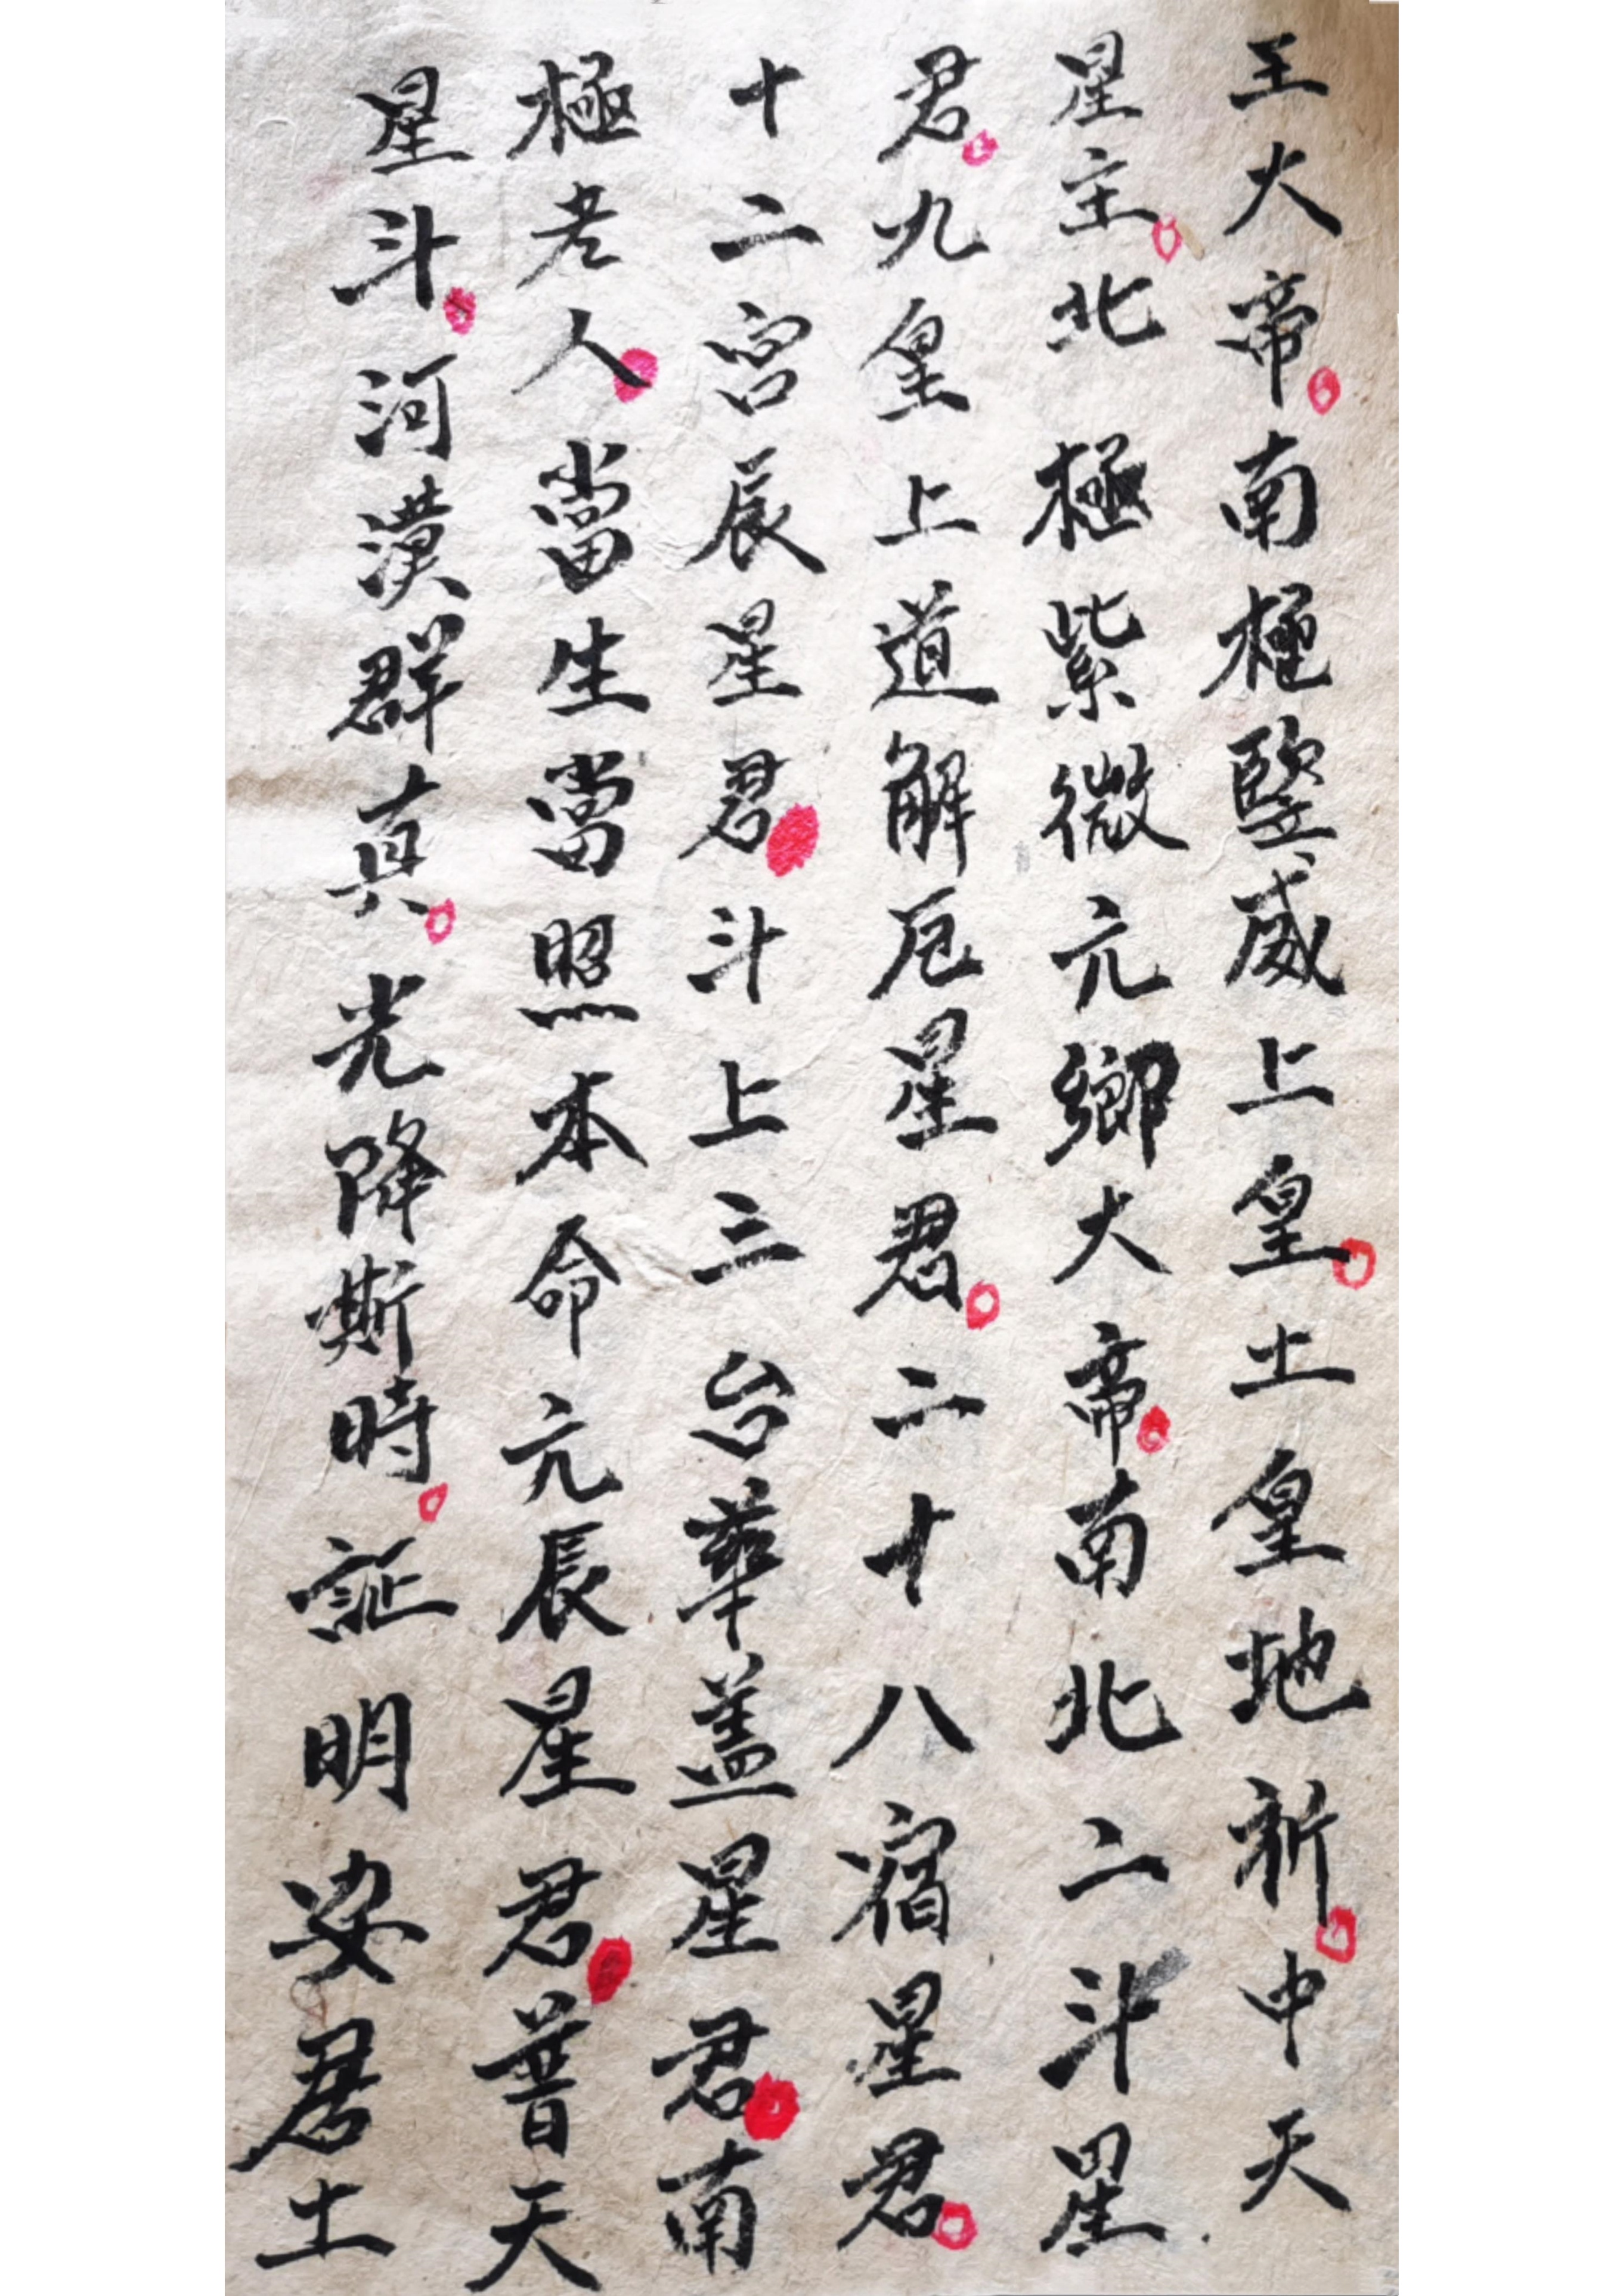 王大帝。南極鑒威上皇。土皇地祈。中天
星主。北極紫微元鄉大帝。南北二斗星
君。九皇上道解厄星君。二十八宿星君。
十二宮辰星君。斗上三台華蓋星君。南
極老人。當生當照本命元辰星君。普天
星斗。河漢群真。光降嘶時。証明安君土